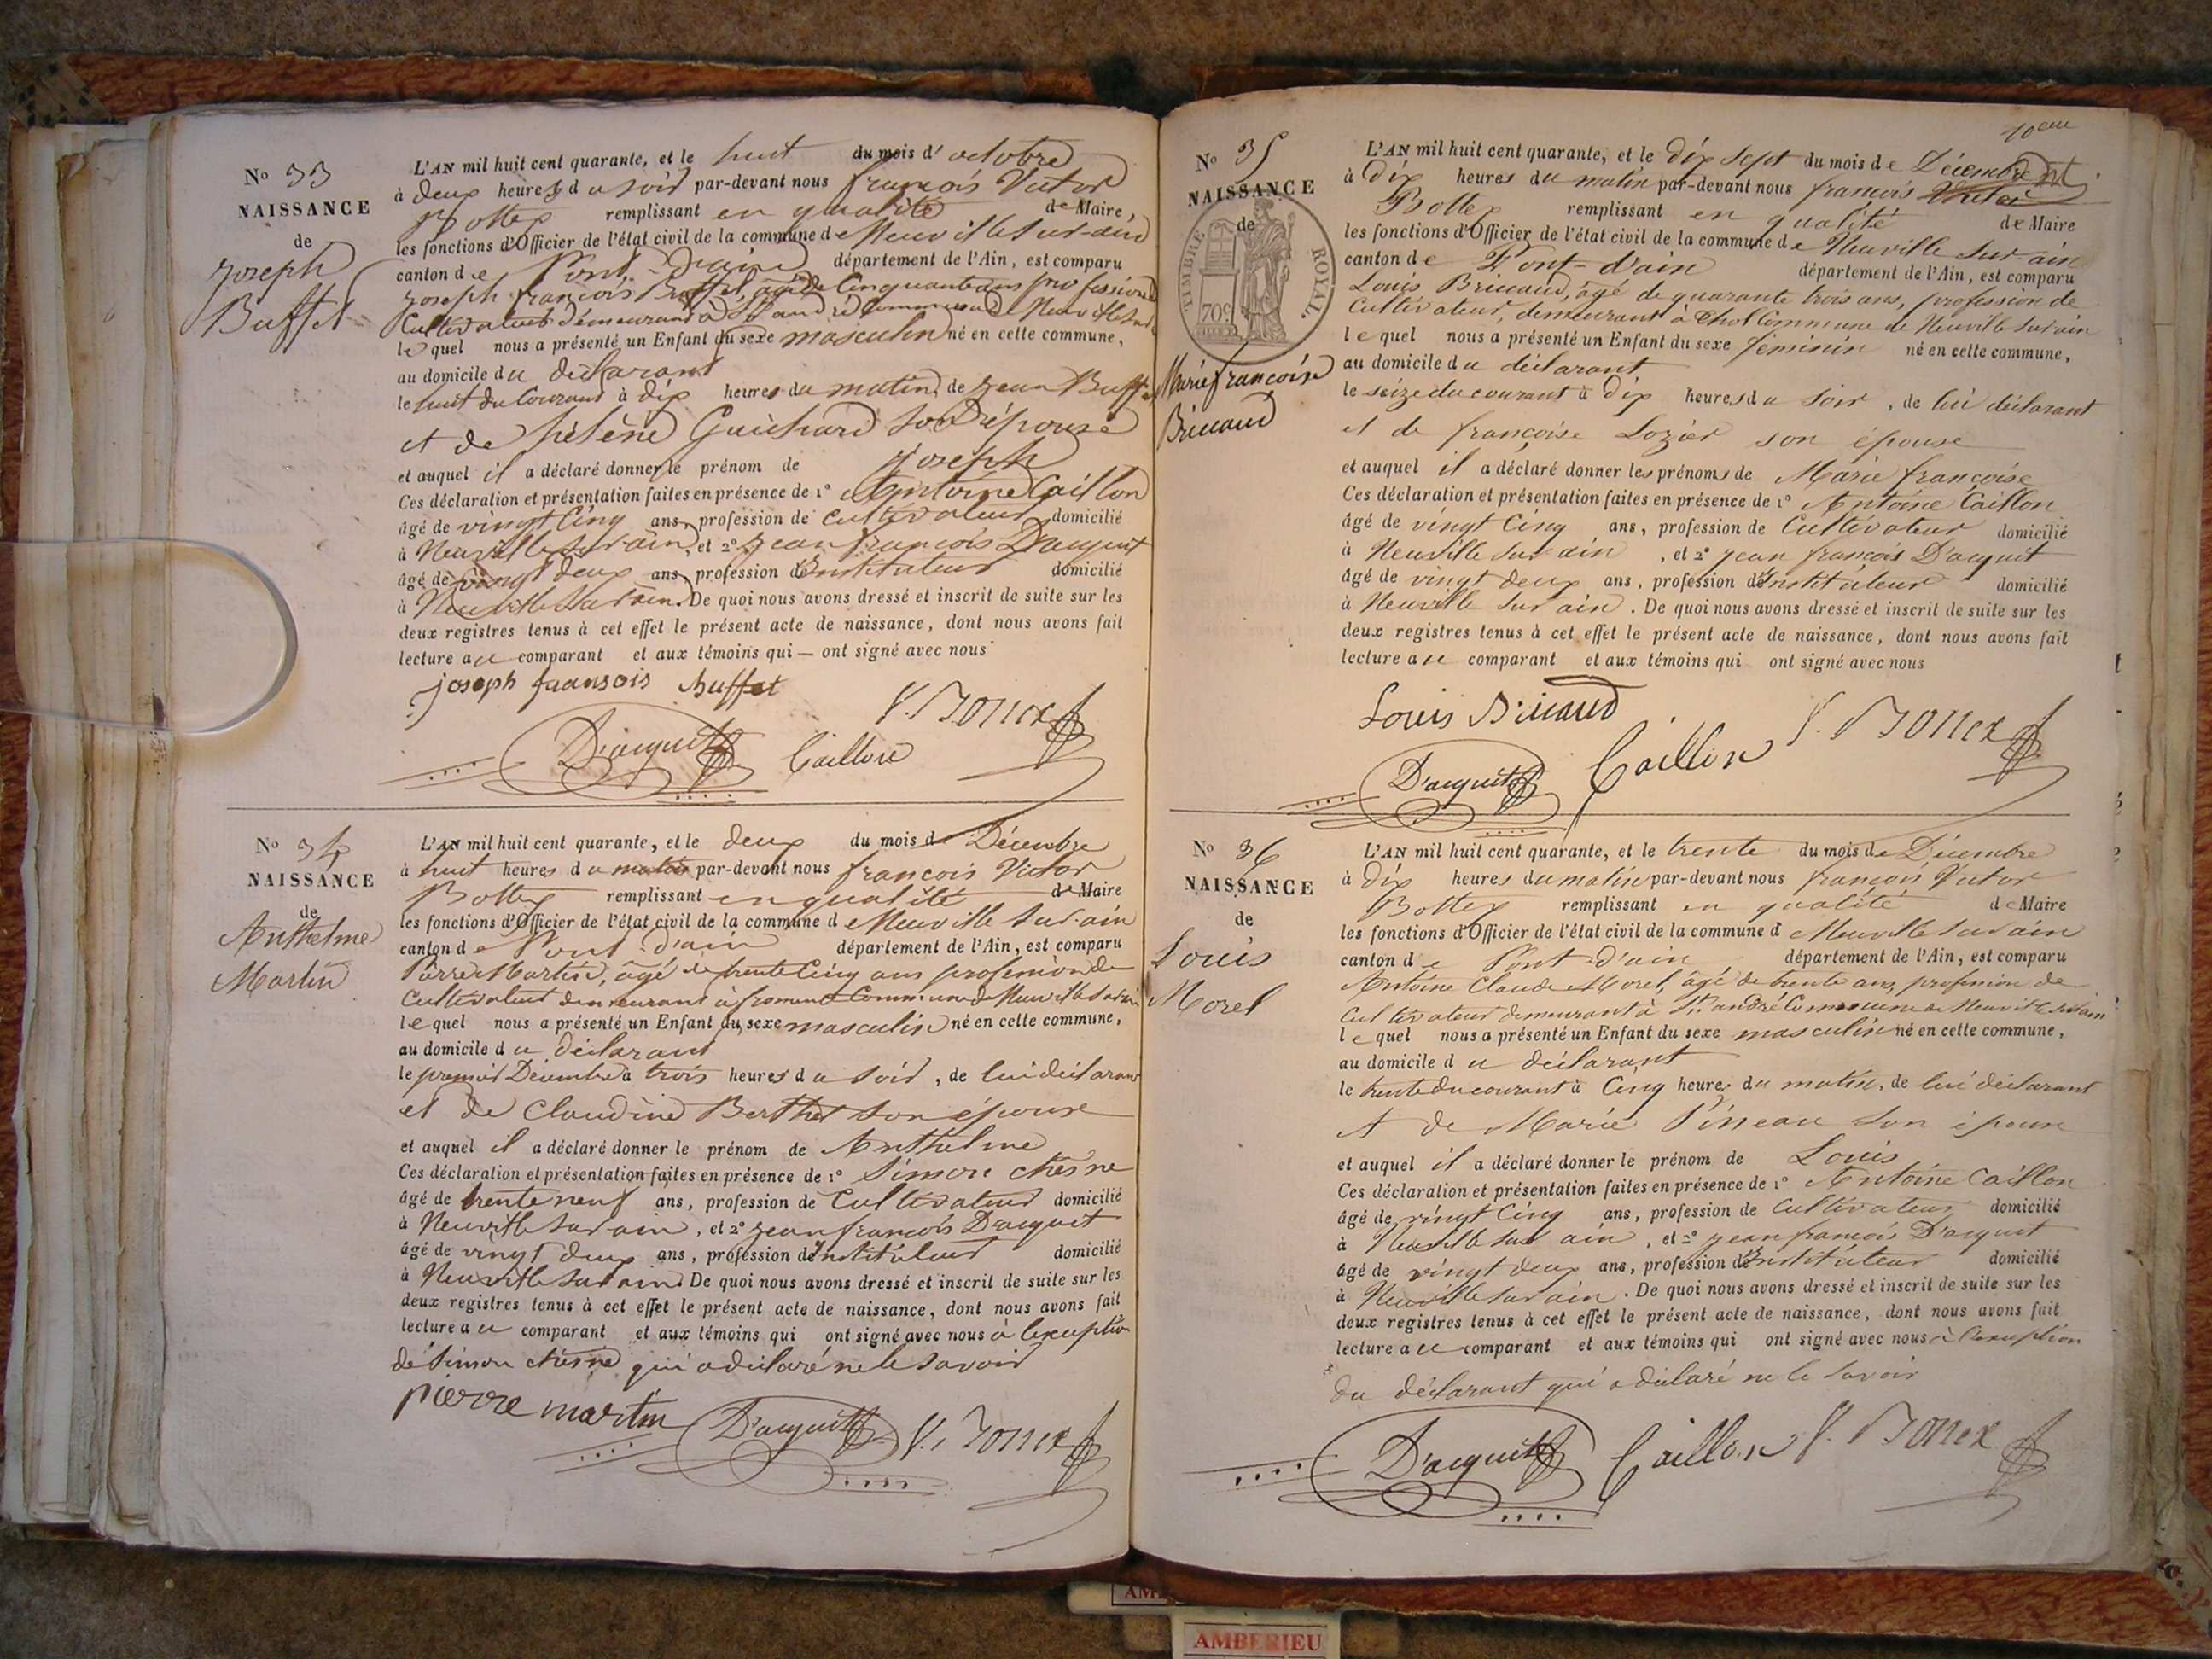 No 33
NAISSANCE
de
Joseph
Buffet
L'AN mil huit cent quarante, et le huit du mois d'octobre
à deux heures du soir par-devant nous françois Victor
Bottex remplissant en qualité de Maire,
les fonctions d'Officier de l'état civil de la commune de Neuville sur-ain
canton de Pont-d'ain département de l'Ain, est comparu
Joseph françois Buffet, âgé de Cinquante ans profession de
Cultivateur demeurant à St andré Commune de Neuville sur
lequel nous a présenté un Enfant du sexe masculin né en cette commune,
au domicile du déclarant
le huit du Courant à dix heures du matin, de Jean Buffet
et de hélène Guichard son épouse
et auquel il a déclaré donner le prénom de Joseph
Ces déclaration et présentation faites en présence de 1° Antoine Caillon
âgé de vingt Cinq ans, profession de cultivateur domicilié
à Neuville sur ain, et 2° Jean françois D'acquit
âgé de vingt deux ans, profession d'Instituteur domicilié
à Neuville sur ain. De quoi nous avons dressé et inscrit de suite sur les
deux registres tenus à cet effet le présent acte de naissance, dont nous avons fait
lecture au comparant et aux témoins qui — ont signé avec nous
joseph fransois buffet
V. Bottex
D'acquit Caillon
No 34
NAISSANCE
de
Anthelme
Martin
L'AN mil huit cent quarante, et le deux du mois de Décembre
à huit heures du matin par-devant nous françois Victor
Bottex remplissant en qualité de Maire
les fonctions d'Officier de l'état civil de la commune de Neuville sur-ain
canton de Pont d'ain département de l'Ain, est comparu
Pierre Martin, âgé de trente Cinq ans profession de
Cultivateur demeurant à fromente Commune de Neuville sur ain
lequel nous a présenté un Enfant du sexe masculin né en cette commune,
au domicile du déclarant
le premier Décembre à trois heures du soir, de lui déclarant
et de Claudine Berthet son épouse
et auquel il a déclaré donner le prénom de Anthelme
Ces déclaration et présentation faites en présence de 1° Simon chêne
âgé de trente neuf ans, profession de Cultivateur domicilié
à Neuville sur ain, et 2° Jean françois D'acquit
âgé de vingt deux ans, profession d'Instituteur domicilié
à Neuville sur ain. De quoi nous avons dressé et inscrit de suite sur les
deux registres tenus à cet effet le présent acte de naissance, dont nous avons fait
lecture au comparant et aux témoins qui ont signé avec nous à l'exception
de Simon chêne qui a déclaré ne le savoir
pierre martin D'acquit V. Bottex
10eme
No 35
NAISSANCE
de
TIMBRE ROYAL.
70c
Marie françoise
Bricaud
L'AN mil huit cent quarante, et le dix sept du mois de Décembre
à Dix heures du matin par-devant nous françois Victor
Bottex remplissant en qualité de Maire
les fonctions d'Officier de l'état civil de la commune de Neuville sur ain
canton de Pont-d'ain département de l'Ain, est comparu
Louis Bricaud, âgé de quarante trois ans, profession de
Cultivateur, demeurant à Chol Commune de Neuville sur ain
lequel nous a présenté un Enfant du sexe féminin né en cette commune,
au domicile du déclarant
le seize du courant à Dix heures du soir, de lui déclarant
et de françoise Lozier son épouse
et auquel il a déclaré donner les prénoms de Marie françoise
Ces déclaration et présentation faites en présence de 1° Antoine Caillon
âgé de vingt Cinq ans, profession de Cultivateur domicilié
à Neuville sur ain, et 2° jean françois D'acquit
âgé de vingt deux ans, profession d'Instituteur domicilié
à Neuville sur ain. De quoi nous avons dressé et inscrit de suite sur les
deux registres tenus à cet effet le présent acte de naissance, dont nous avons fait
lecture au comparant et aux témoins qui ont signé avec nous
Louis Bricaud
D'acquit Caillon V. Bottex
No 36
NAISSANCE
de
Louis
Morel
L'AN mil huit cent quarante, et le trente du mois de Décembre
à dix heures du matin par-devant nous françois Victor
Bottex remplissant en qualité de Maire
les fonctions d'Officier de l'état civil de la commune de Neuville sur ain
canton de Pont-d'ain département de l'Ain, est comparu
Antoine Claude Morel, âgé de trente ans, profession de
Cultivateur demeurant à St andré Commune de Neuville sur ain
lequel nous a présenté un Enfant du sexe masculin né en cette commune,
au domicile du déclarant
le trente du courant à Cinq heures du matin, de lui déclarant
et de Marie Pineau son épouse
et auquel il a déclaré donner le prénom de Louis
Ces déclaration et présentation faites en présence de 1° Antoine Caillon
âgé de vingt Cinq ans, profession de Cultivateur domicilié
à Neuville sur ain, et 2° jean françois D'acquit
âgé de vingt deux ans, profession d'Instituteur domicilié
à Neuville sur ain. De quoi nous avons dressé et inscrit de suite sur les
deux registres tenus à cet effet le présent acte de naissance, dont nous avons fait
lecture au comparant et aux témoins qui ont signé avec nous à l'exception
du déclarant qui a déclaré ne le savoir
D'acquit Caillon V. Bottex
AMBERIEU